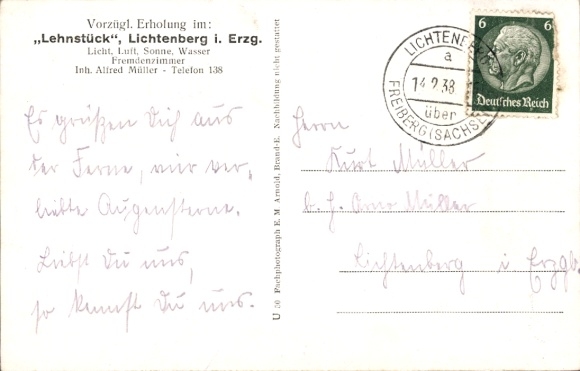 Vorzügl. Erholung im:
„Lehnstück“, Lichtenberg i. Erzg.
Licht, Luft, Sonne, Wasser
Fremdenzimmer
Inh. Alfred Müller - Telefon 138
Es grüßen Dich aus
der Ferne, vier ver-
liebte Augensterne.
Liebst Du uns,
so kennst Du uns.
U 50 Fachphotograph E. M. Arnold, Brand-E. Nachbildung nicht gestattet
LICHTENBERG
a
14.2.38
über
FREIBERG (SACHS)
6 6
Deutsches Reich
Herrn
Kurt Müller
b. H. Arno Müller
Lichtenberg i Erzgb.